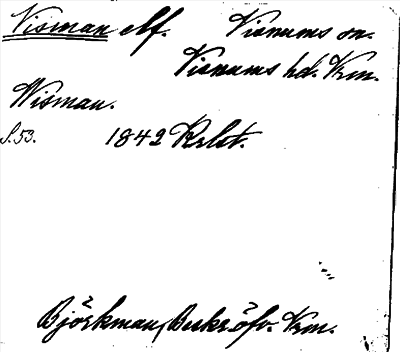 Visman elf. Visnums sn.
Visnums hd. Vrm.
Wisman.
S. 53. 1842 Krlst.
Björkman, Beskr. öfv. Vrm.